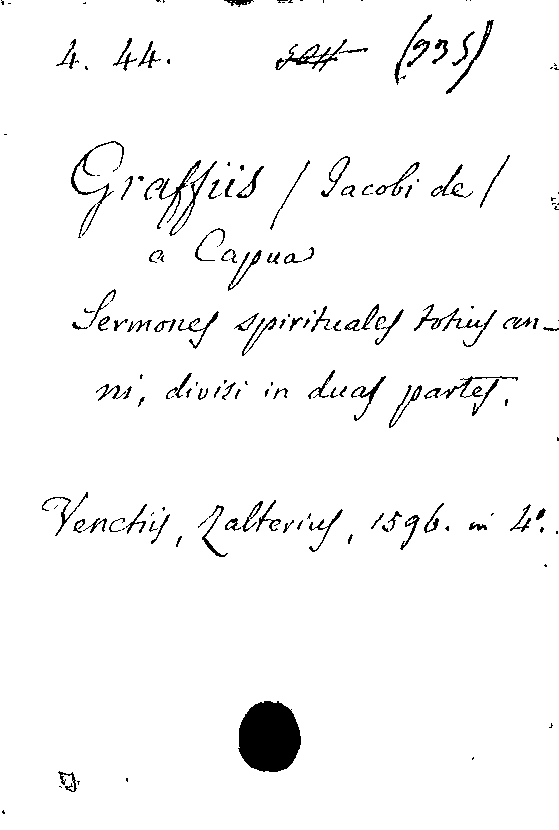 4. 44. (935)
Graffiis / Jacobi de /
a Capua
Sermones spirituales totius an-
ni, divisi in duas partes.
Venetiis, Zalterius, 1596. in 4°.